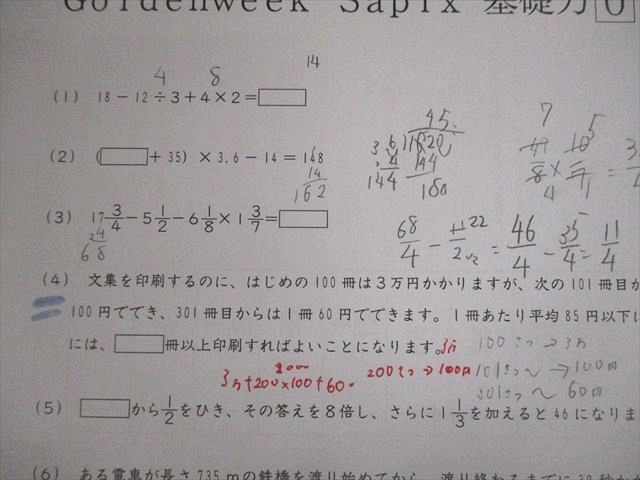 Goldenweek Sapix 基礎力 0
4 8 14
(1) 18-12÷3+4×2=
(2) ( +35) ×3.6-14=148
14
162
45.
3.6)1620
144
180
(3) 17 3/4-5 1/2-6 1/8×1 3/7=
68/4 - 11/2 = 46/4 - 35/4 = 11/4
(4) 文集を印刷するのに、はじめの100冊は3万円かかりますが、次の101冊目か
100円でき、301冊目からは1冊60円でできます。1冊あたり平均85円以下に
には、 冊以上印刷すればよいことになります。
100さつ→3万
3万+200×100+60
200さつ→100円
101さつ〜→100円
301さつ〜60円
(5) から1/2をひき、その答えを8倍し、さらに1 1/3を加えると46になりま
(6) ある電車が長さ735mの鉄橋を渡り始めてから、渡り終わるまでに